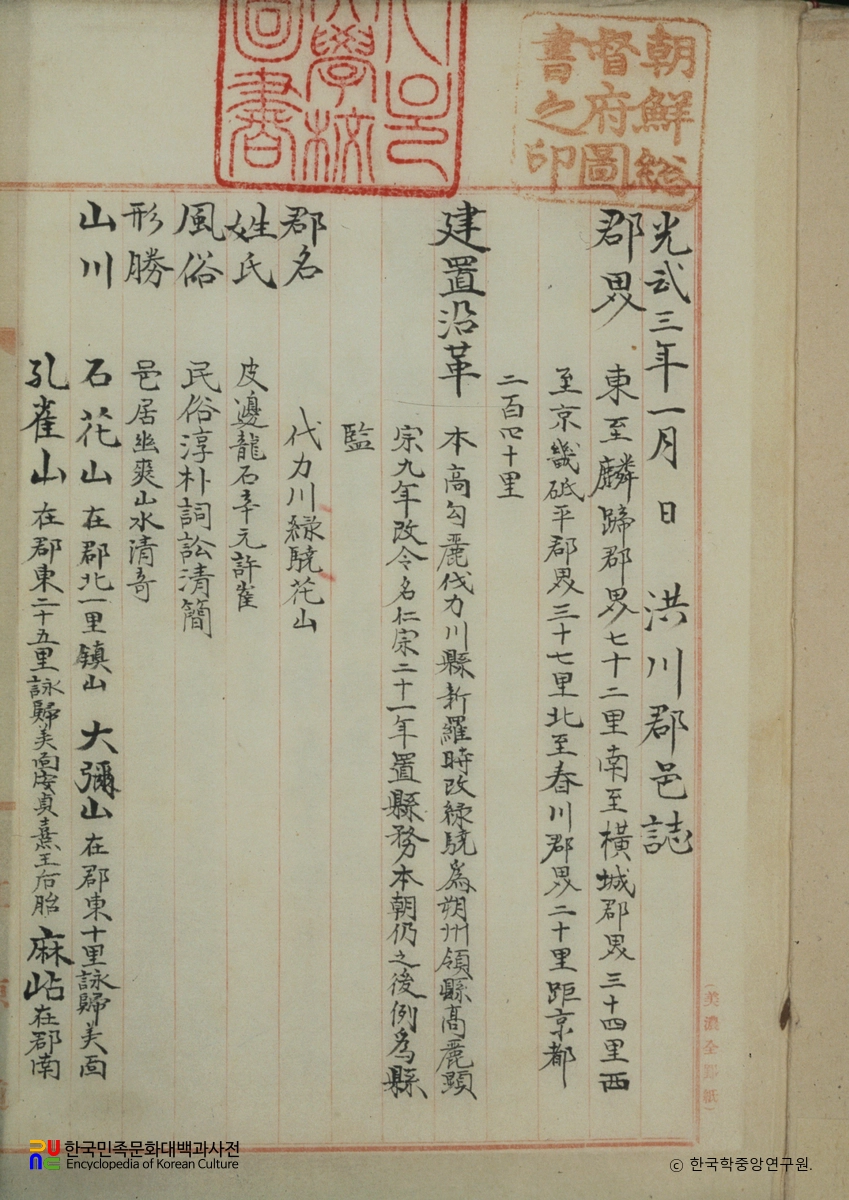 朝鮮総
督府圖
書之印
學校
圖書
光武三年一月 日 洪川郡邑誌
郡界 東至麟蹄郡界七十二里南至橫城郡界三十四里西
至京畿砥平郡界三十七里北至春川郡界二十里距京都
二百四十里
建置沿革 本高勾麗伐力川縣新羅時改綠驍爲朔州領縣高麗顯
宗九年改令名仁宗二十一年置縣務本朝仍之後例爲縣
監
郡名 伐力川綠驍花山
姓氏 皮邊龍石辛元許崔
風俗 民俗淳朴詞訟清簡
形勝 邑居幽爽山水清奇
山川 石花山在郡北一里鎮山 大彌山在郡東十里詠歸美面
孔雀山在郡東二十五里詠歸美面安貞熹王后胎 麻岾在郡南
(美濃全罫紙)
한국민족문화대백과사전
Encyclopedia of Korean Culture
ⓒ 한국학중앙연구원.